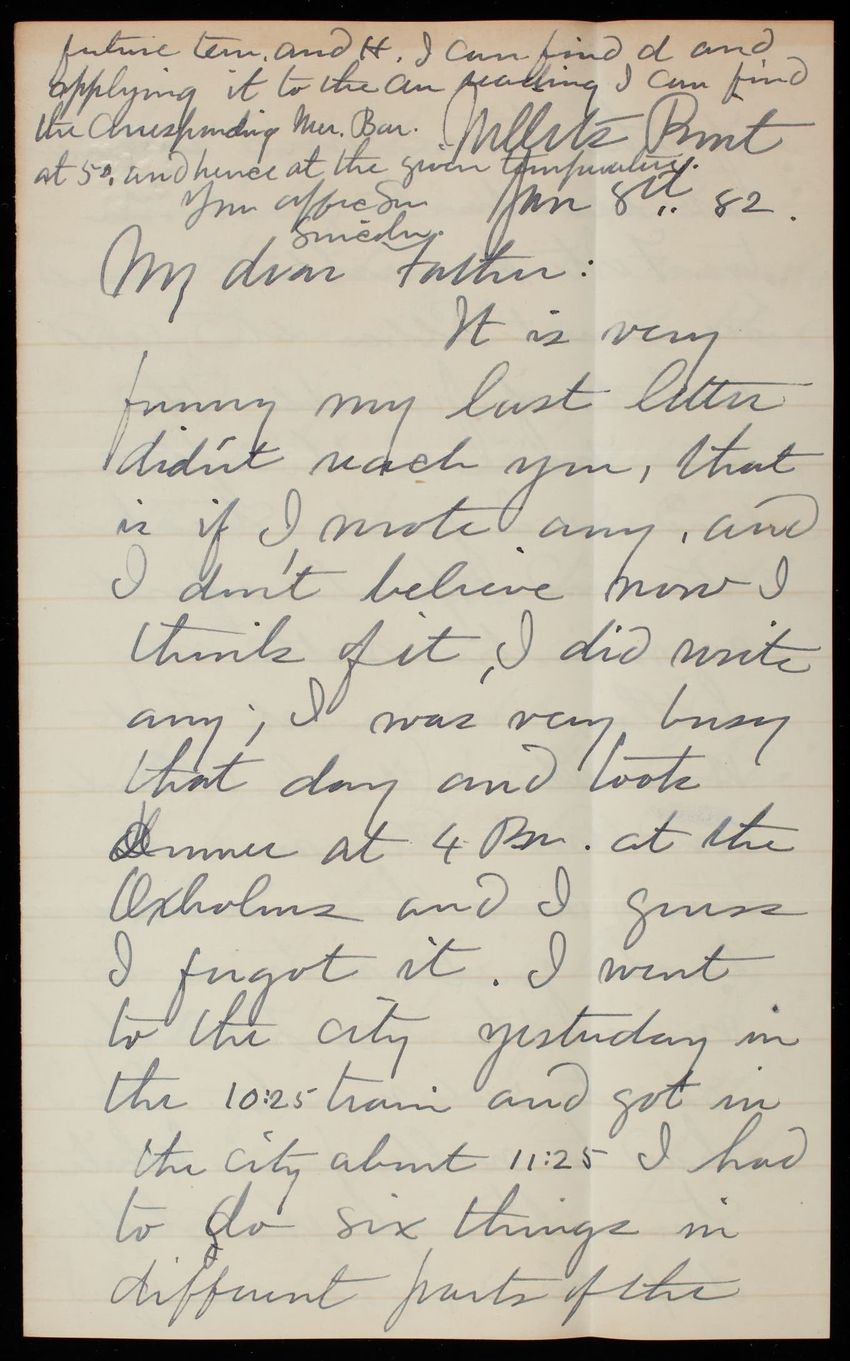 future tem. and H. I can find d and
applying it to the an reading I can find
the Corresponding Mer. Bar.
at 50, and hence at the given temperature.
Your affec Son
Lincoln.
Willets Point
Jan 8th 82.
My dear Father:
It is very
funny my last letter
didn't reach you, that
is if I wrote any, and
I don't believe now I
think of it, I did write
any; I was very busy
that day and took
dinner at 4 Pm. at the
Oxholms and I guess
I forgot it. I went
to the city yesterday in
the 10:25 train and got in
the city about 11:25 I had
to do six things in
different parts of the